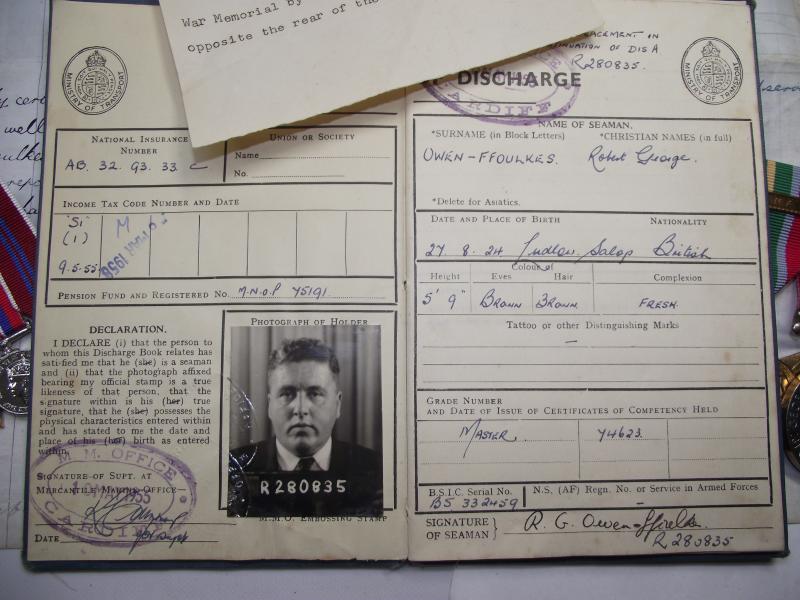 War Memorial by
opposite the rear of the
MINISTRY OF TRANSPORT
National Insurance
Number
AB. 32. 93. 33. C
Union or Society
Name
No.
Income Tax Code Number and Date
'Si'
(1)
9.5.55
M
MAR 1958
Pension Fund and Registered No. M.N.O.P 75191
DECLARATION.
I DECLARE (i) that the person to
whom this Discharge Book relates has
satisfied me that he (she) is a seaman
and (ii) that the photograph affixed
bearing my official stamp is a true
likeness of that person, that the
signature within is his (her) true
signature, that he (she) possesses the
physical characteristics entered within
and has stated to me the date and
place of his (her) birth as entered
within.
Signature of Supt. at
Mercantile Marine Office—
M. M. OFFICE
1955
CARDIFF
Date
Photograph of Holder
R280835
M.M.O. Embossing Stamp
PLACEMENT IN
CONTINUATION OF DIS A
R280835.
DISCHARGE
CARDIFF
MINISTRY OF TRANSPORT
NAME OF SEAMAN.
*SURNAME (in Block Letters) *CHRISTIAN NAMES (in full)
OWEN-FFOULKES. Robert George.
*Delete for Asiatics.
Date and Place of Birth Nationality
27. 8. 24 Ludlow Salop British
Height Colour of Complexion
Eyes Hair
5' 9" Brown Brown FRESH
Tattoo or other Distinguishing Marks
Grade Number
and Date of Issue of Certificates of Competency Held
MASTER 74623
B.S.I.C. Serial No. N.S. (AF) Regn. No. or Service in Armed Forces
BS 332459 –
SIGNATURE
OF SEAMAN
R. G. Owen-ffoulkes.
R280835